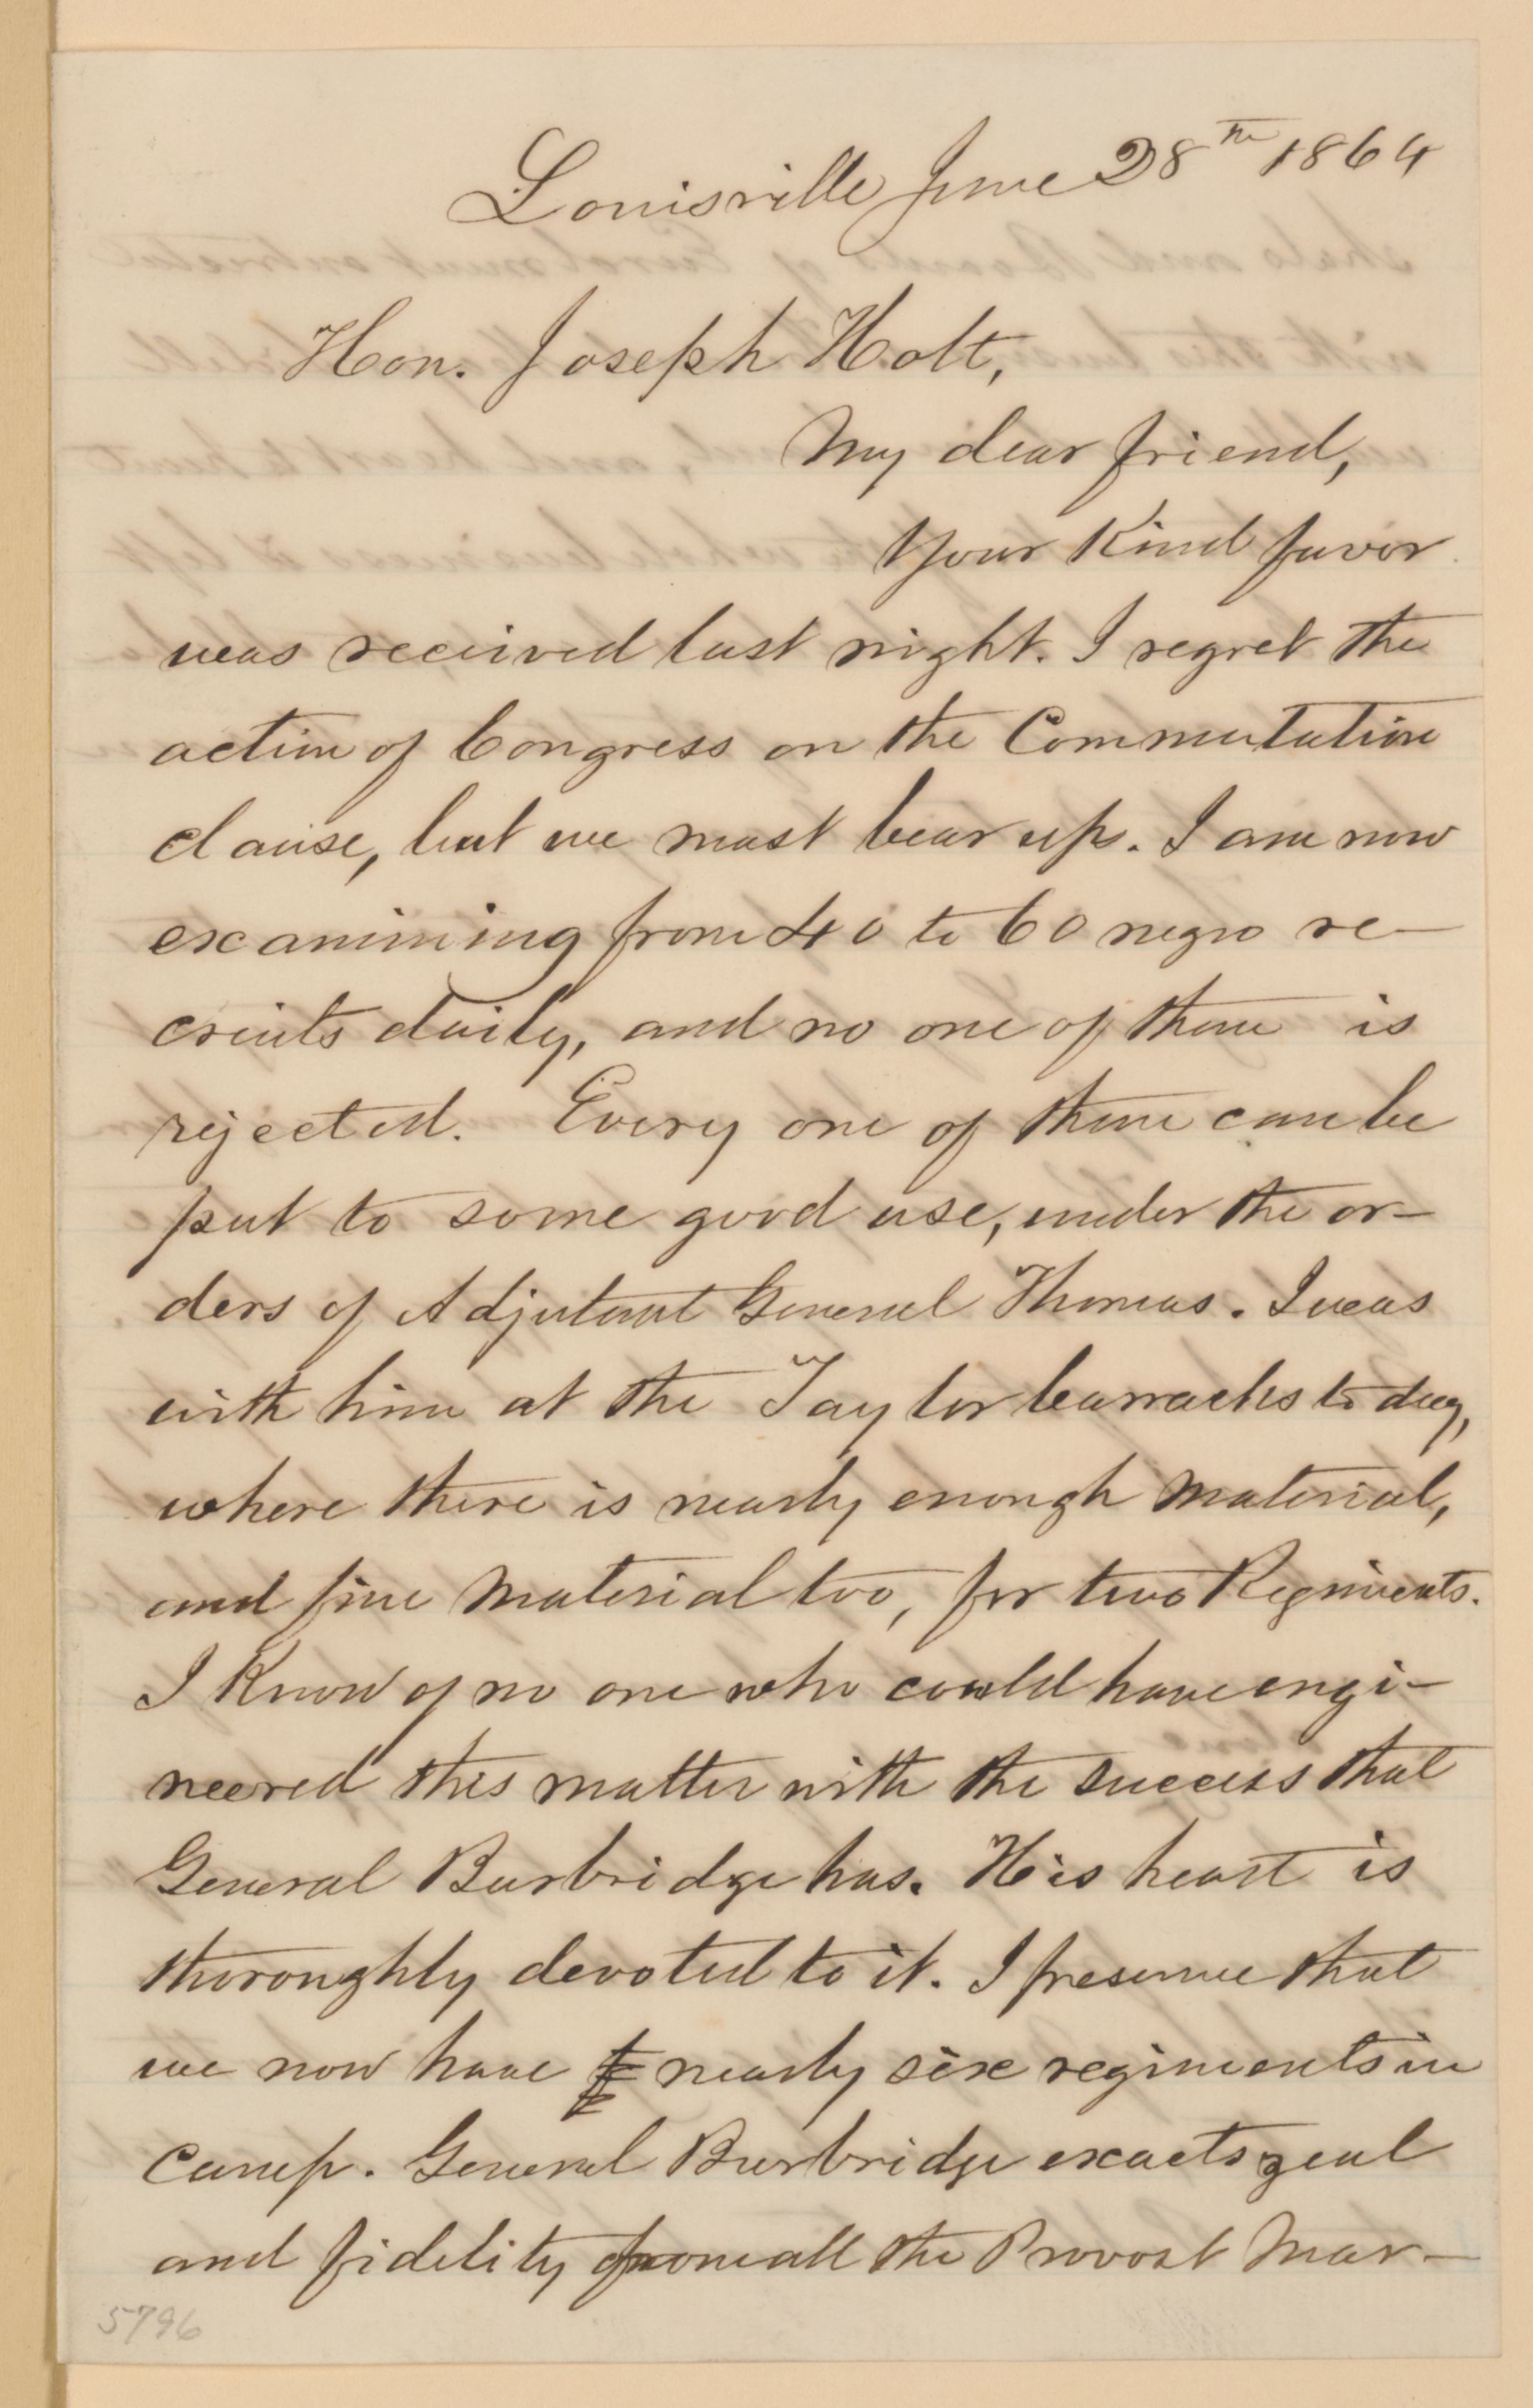 Louisville June 28th 1864
Hon. Joseph Holt,
My dear friend,
Your Kind favor
was received last night. I regret the
action of Congress on the Commutation
clause, but we must bear up. I am now
examining from 40 to 60 negro re-
cruits daily, and no one of them is
rejected. Every one of them can be
put to some good use, under the or-
ders of Adjutant General Thomas. I was
with him at the Taylor barracks to day,
where there is nearly enough material,
and fine material too, for two Regiments.
I Know of no one who could have engi-
neered this matter with the success that
General Burbridge has. His heart is
thoroughly devoted to it. I presume that
we now have nearly six regiments in
camp. General Burbridge exacts zeal
and fidelity from all the Provost Mar-
5796